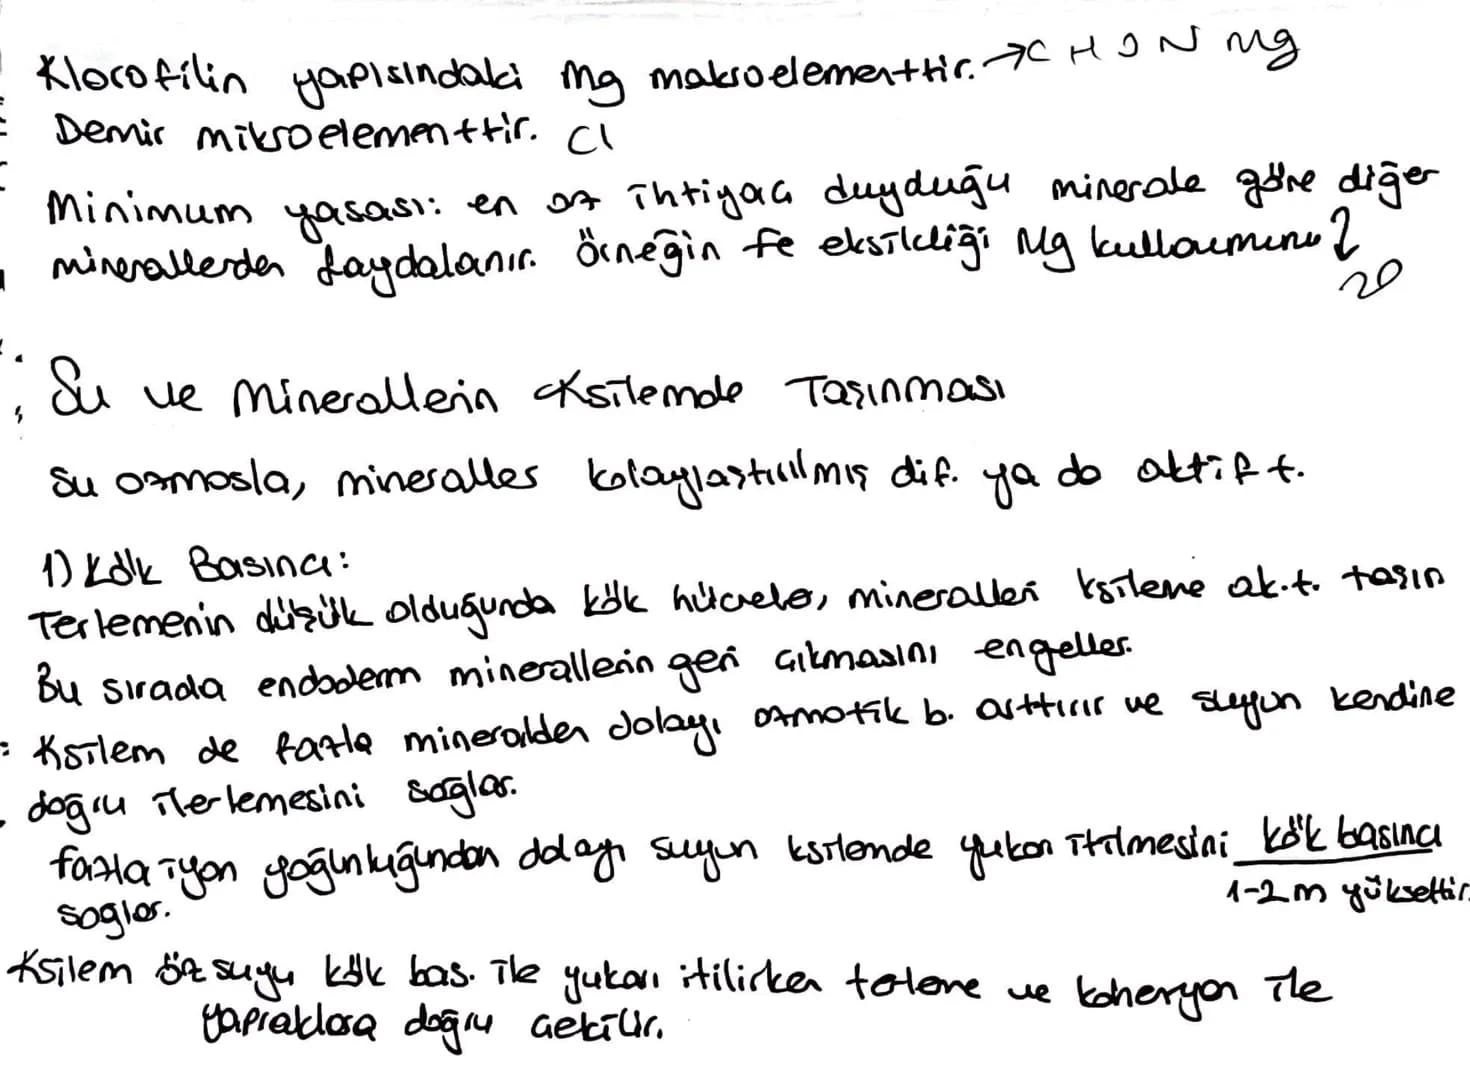 Klorofilin yapısındaki Mg makroelementtir. → C H O N Mg
Demir mikroelementtir. Cl
Minimum yasası: en az ihtiyaç duyduğu minerale göre diğer
minerallerden faydalanır. Örneğin Fe eksikliği Mg kullanımını
Su ve Minerallerin Ksilemde Taşınması
Su ozmosla, mineraller kolaylaştırılmış dif. ya da aktif t.
1) Kök Basıncı:
Terlemenin düşük olduğunda kök hücreler, mineralleri ksileme ak.t. taşır
Bu sırada endoderm minerallerin geri çıkmasını engeller.
Ksilem de fazla mineralden dolayı ozmotik b. arttırır ve suyun kendine
doğru ilerlemesini sağlar.
fazla iyon yoğunluğundan dolayı suyun ksilemde yukarı itilmesini kök basıncı
sağlar. 1-2 m yükseltir.
Ksilem öz suyu kök bas. ile yukarı itilirken terleme ve kohezyon ile
yapraklara doğru çekilir.